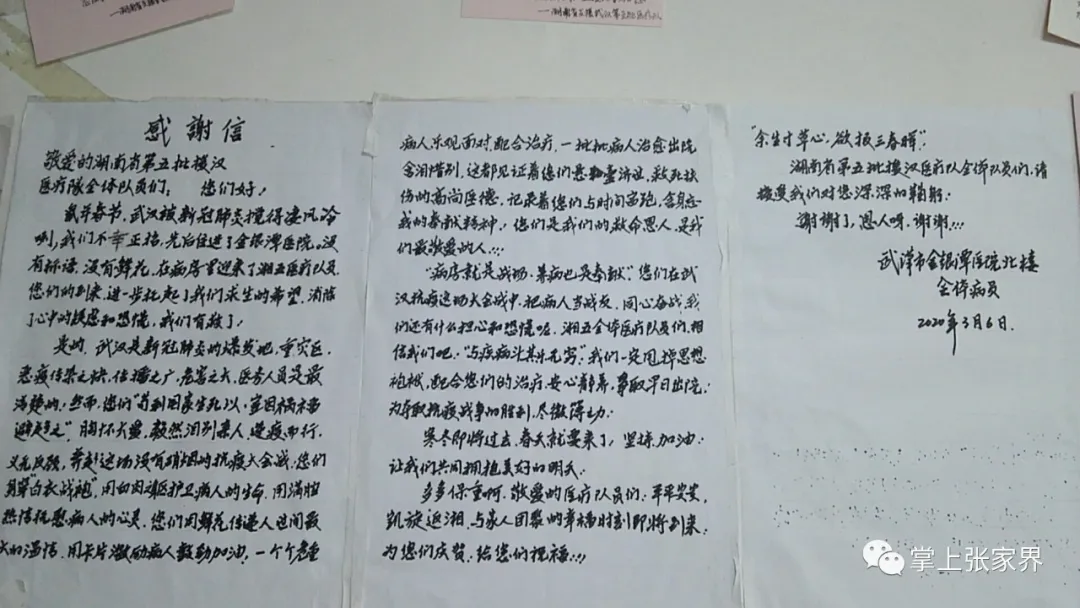 ——湖南省支援武汉第五批医疗队
感謝信
敬爱的湖南省第五批援汉
医疗队全体队员们: 您们好!
鼠年春节,武汉被新冠肺炎搅得凄风冷
咧,我们不幸正捂,先后住进了金银潭医院。没
有标语,没有鲜花,在病房里迎来了湘五医疗队员,
您们的到来,进一步托起了我们求生的希望,消除
了心中的疑虑和恐慌,我们有救了!
是的,武汉是新冠肺炎的爆发地,重灾区,
恶疫传染之快,传播之广,危害之大,医务人员是最
清楚的!然而,您们“苟利国家生死以,岂因祸福
避趋之”,胸怀大爱,毅然泪别亲人,逆疫而行,
义无反顾,奔赴这场没有硝烟的抗疫大会战,您们
身穿白衣战袍”,用血肉之躯护卫病人的生命,用满腔
热情抚慰病人的心灵,您们用鲜花传递人世间最
大的温情,用卡片激励病人鼓劲加油,一个个危重
病人乐观面对,配合治疗,一批批病人治愈出院
含泪惜别,这都见证着您们悬壶济世,救死扶
伤的高尚医德,记录着您们与时间赛跑,舍身忘
我的奉献精神!您们是我们的救命恩人,是我
们最敬爱的人!!!
“病房就是战场,善病也是奉献”,您们在武
汉抗疫这场大会战中,把病人当战友,同心奋战,我
们还有什么担心和恐慌呢,湘五全体医疗队员们,相
信我们吧,“与疾病斗其乐无穷”,我们一定甩掉思想
袍袱,配合您们的治疗,安心静养,争取早日出院,
为夺取抗疫战争的胜利,尽微薄之力!
寒冬即将过去,春天就要来了,坚持,加油!
让我们共同拥抱美好的明天!
多多保重啊,敬爱的医疗队员们,平平安安,
凯旋返湘,与家人团聚的幸福时刻即将到来,
为您们庆贺,给您们祝福!!!
“余生寸草心,欲报三春晖”!
湖南省第五批援汉医疗队全体队员们,请
接受我们对您深深的鞠躬!
谢谢了,恩人呀,谢谢!!!
武汉市金银潭医院北楼
全体病员
2020年3月6日.
掌上张家界